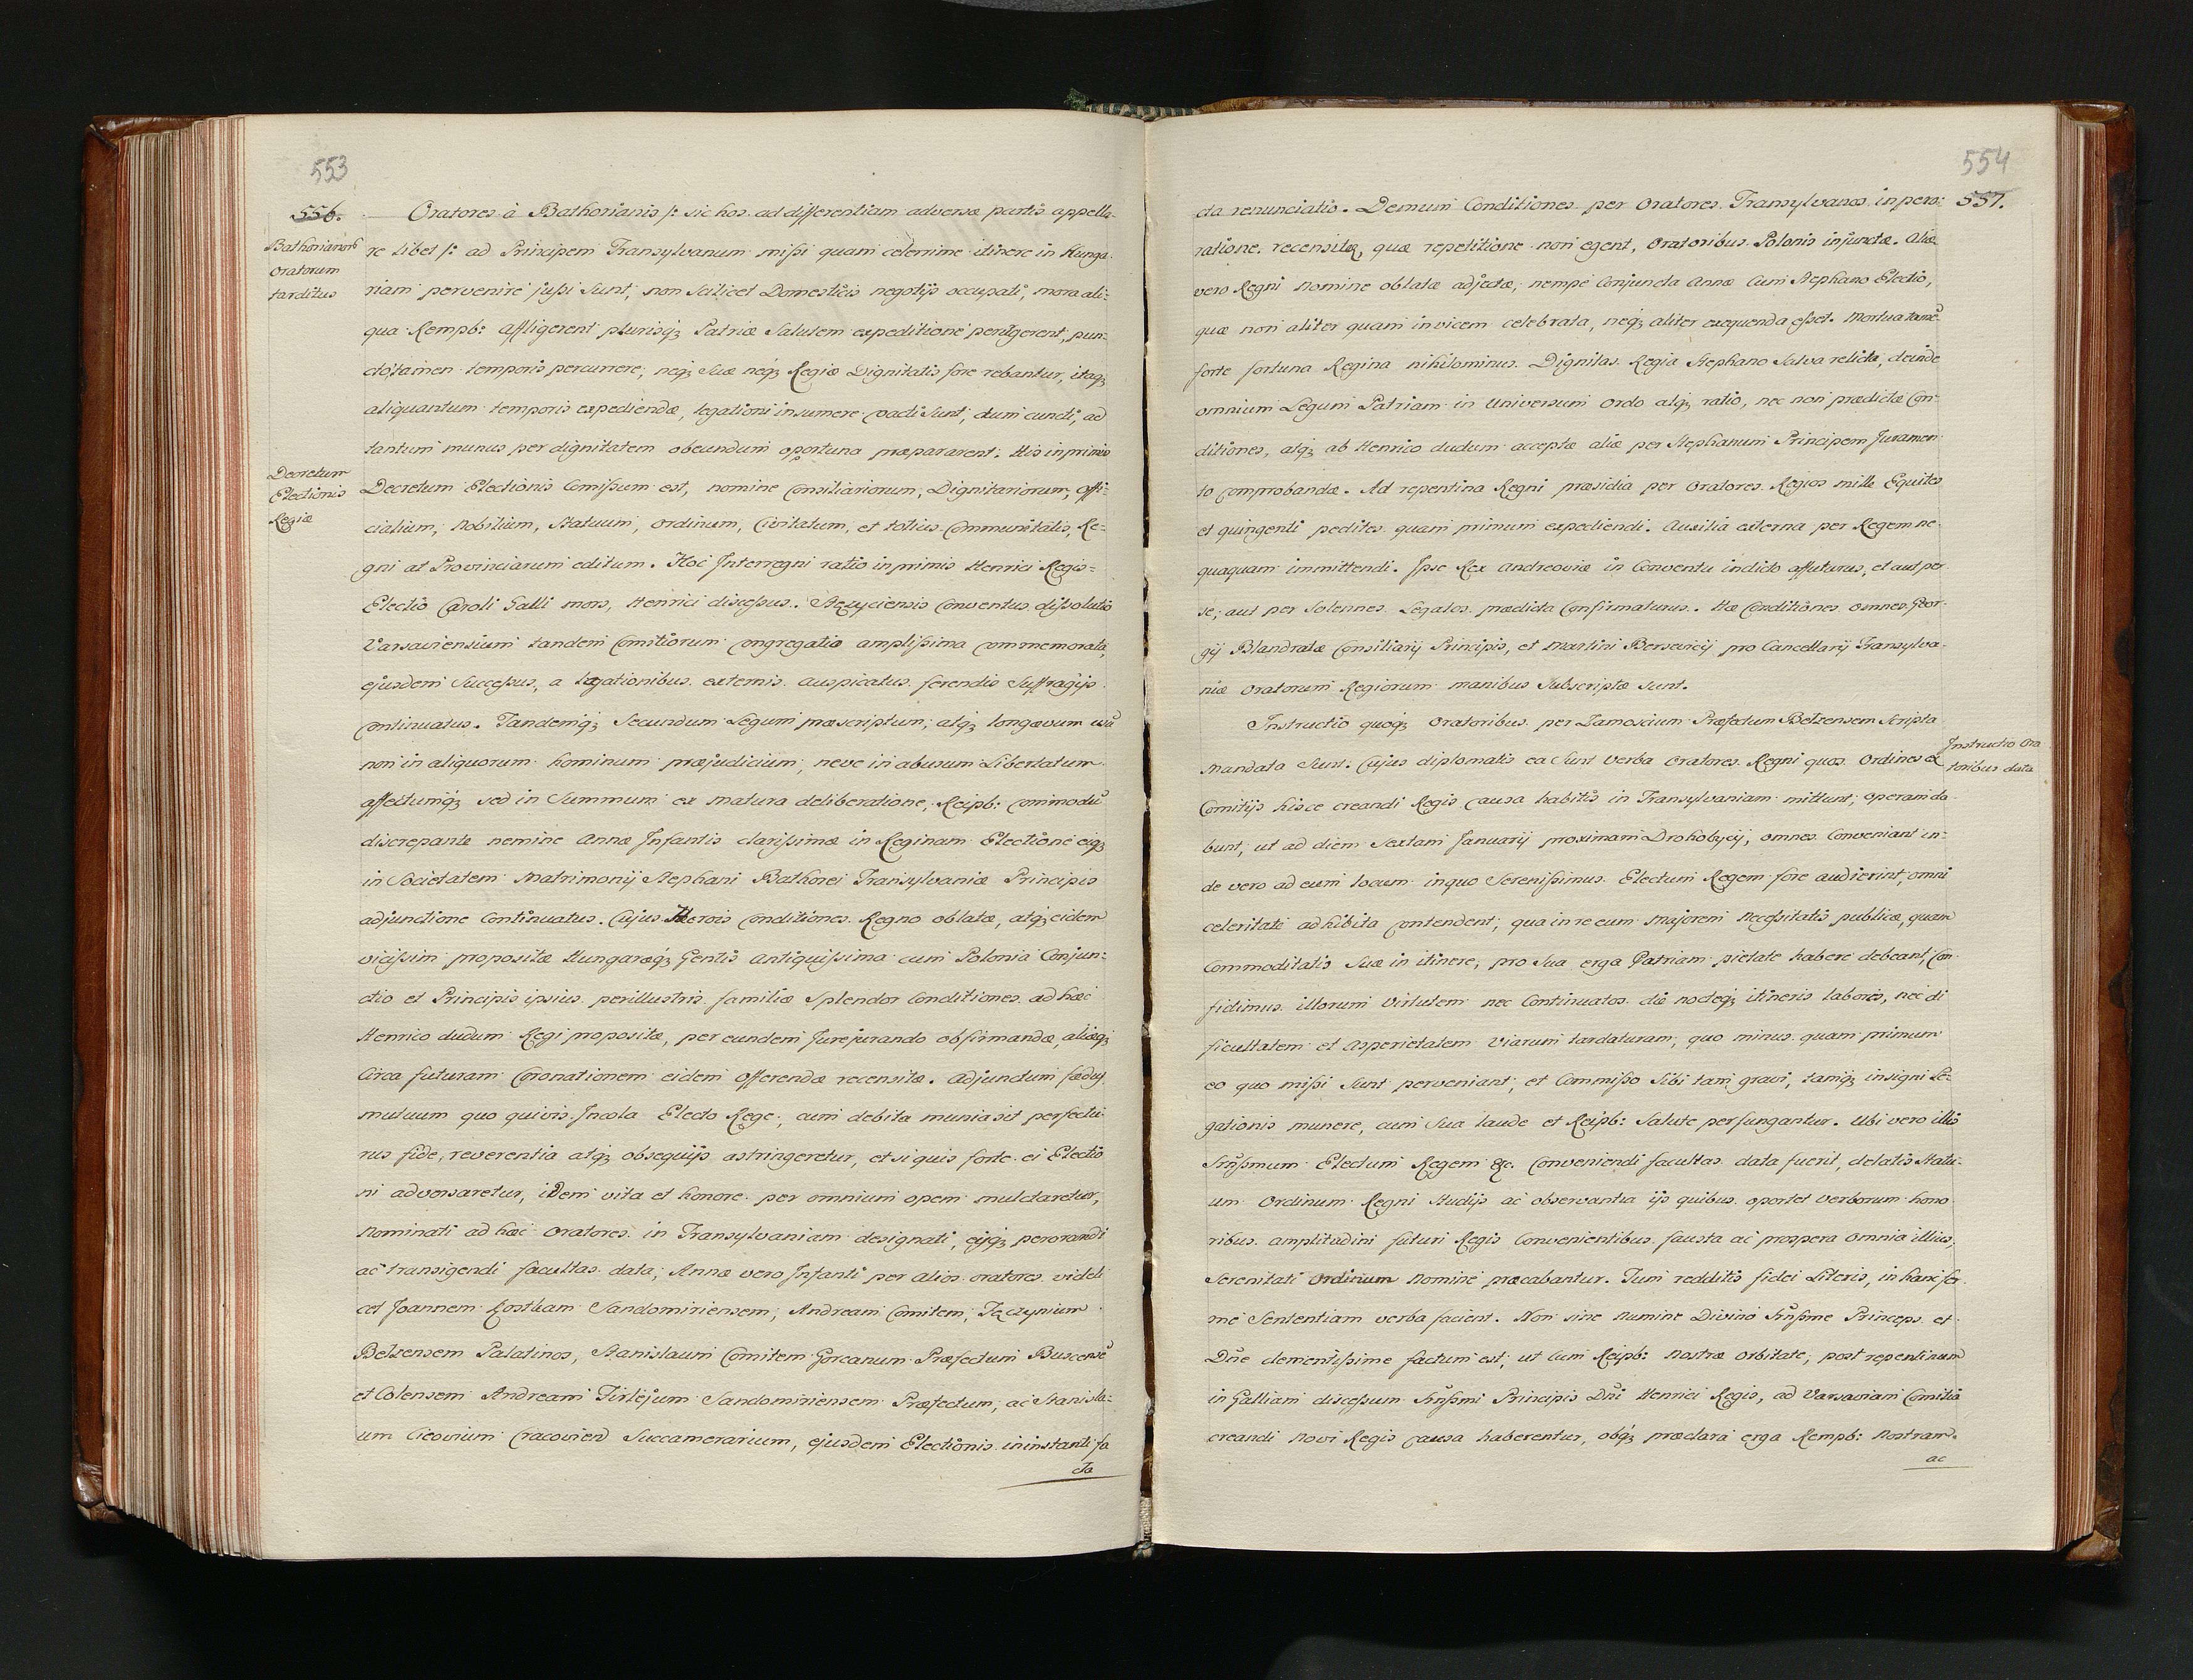 553
556.
Oratores à Bathorianis /: sic hos ad differentiam adversæ partis appella-
Bathorianorũ
Oratorum
tarditus
re libet :/ ad Principem Transylvanum missi quam celerrime itinere in Hunga-
riam pervenire jussi sunt, non scilicet Domesticis negotijs occupati, mora ali-
qua Rempb: affligerent plurisq₃ Patriæ Salutem expeditione
dotamen temporis percurrere, neq₃ Suæ neq₃ Regiæ Dignitatis fore rebantur, itaq₃
aliquantum temporis expediendæ, legationi insumere sunt, dum cuncti, ad
tantum munus per dignitatem obeundum oportuna præpararent. His inprimis
Decretum
Electionis
Regiæ
Decretum Electionis Comissum est, nomine Consiliariorum, Dignitariorum, Offi-
cialium, Nobilium, Statuum, Ordinum, Civitatum, et totius Communitatis, Re-
gni at Provinciarum editum. Hoc Interregni ratio inprimis Henrici Regis-
Electio Caroli Galli mors, Henrici discessus. Stezyciensis Conventus dissolutio
Varsaviensium tandem Comitiorum Congregatio amplissima commemorata,
ejusdem Successus, a legationibus externis auspicatus ferendis Suffragijs
Continuatus. Tandemq₃ Secundum Legum præscriptum, atq₃ longævum usũ
non in aliquorum hominum præjudicium, neve in abusum Libertatum
affectumq₃ sed in Summum ex matura deliberatione, Reipb: commodũ
discrepante nemine Annæ Infantis clarissimæ in Reginam Electione eiq₃
in Societatem Matrimonij Stephani Bathorei Transylvaniæ Principis
adjunctione Continuatus. Cujus Herois Conditiones Regno oblatæ, atq₃ eidem
vicissim propositæ Hungaræq₃ Gentis antiquissima cum Polonia Conjun-
ctio et Principis ipsius perillustris familiæ Splendor Conditiones ad hæc
Henrico dudum Regi propositæ, per eundem Jurejurando obfirmandæ, aliæq₃
Circa futuram Coronationem eidem Offerendæ recensitæ. Adjunctum fædus
mutuum quo quivis Incola Electo Rege, cum debita munia sit perfectu-
rus fide, reverentia atq₃ obsequijs astringeretur, et si quis forte ei Electio
ni adversaretur, idem vita et honore per omnium opem mulctaretur,
Nominati ad hæc Oratores in Transylvaniam designati, ijsq₃ perorandi
ac transigendi facultas data, Annæ vero Infanti per alios oratores videli
cet Joannem Kostkam Sandomiriensem, Andream Comitem, Tęczynium
Belzensem Palatinos, Stanislaum Comitem Gorcanum Præfectum Buscensẽ
et Colensem Andream Firlejum Sandomiriensem Præfectum, ac Stanisla-
um Cicovium Cracovien Succamerarium, ejusdem Electionis in instanti fa
cta
554
557.
cta renunciatio. Demum Conditiones per Oratores Transylvanos in pero-
ratione recensitæ, quæ repetitione non egent, Oratoribus Polonis injunctæ. Aliæ
vero Regni Nomine oblatæ adjectæ, nempe Conjuncta Annæ Cum Stephano Electio,
quæ non aliter quam invicem celebrata, neq₃ aliter exequenda esset. Mortua tamẽ
forte fortuna Regina nihilominus Dignitas Regia Stephano Salva relicta, deinde
omnium Legum Patriam in Universum Ordo atq₃ ratio, nec non prædictæ Con-
ditiones, atq₃ ab Henrico dudum acceptæ aliæ per Stephanum Principem Juramen-
to Comprobandæ. Ad repentina Regni præsidia per Oratores Regios mille Equites
et quingenti pedites quam primum expediendi. Auxilia externa per Regem ne-
quaquam immittendi. Ipse Rex Andreoviæ in Conventu indicto affuturus, et aut per
se, aut per Solennes Legatos prædicta Confirmaturus. Hæ Conditiones omnes Geor-
gij Blandratæ Consiliarij Principis, et Martini Bersevicij pro Cancellarij Transylva-
niæ Oratorum Regiorum manibus Subscriptæ sunt.
Instructio quoq₃ Oratoribus per Zamoscium Præfectum Belzensem Scripta
Instructio Ora
toribus data
Mandata Sunt. Cujus diplomatis ea Sunt Verba Oratores Regni quos Ordines ex
Comitijs hisce creandi Regis causa habitis in Transylvaniam mittunt, operam da-
bunt, ut ad diem Sextam Januarij proximam Drohobycij, omnes Conveniant in-
de vero ad eum locum inquo Serenissimus Electum Regem fore audierint, omni
celeritate adhibita contendent, qua in re eum Majorem Necessitatis publicæ, quam
Commoditatis Suæ in itinere, pro Sua erga Patriam pietate habere debeant, Con-
fidimus illorum Virtutem nec Continuatos die nocteq₃ itineris labores, nec di
ficultatem et Asperietatem Viarum tardaturam, quo minus quam primum
eo quo missi Sunt perveniant, et Commisso Sibi tam gravi, tamq₃ insigni Le-
gationis munere, cum Sua laude et Reipb: Salute perfungantur. Ubi vero illis
Srẽnissmum Electum Regem &c. Conveniendi facultas data fuerit, delatis Statu-
um Ordinum Regni Studijs ac observantia ijs quibus oportet Verborum hono
ribus amplitudini futuri Regis Convenientibus fausta ac prospera omnia illius,
Serenitati Ordinum Nomine præcabantur. Tum redditis fidei Literis, in hanc fer-
me Sententiam verba facient. Non sine Numine Divino Srẽnissme Princeps et
Dñe clementissime factum est, ut Cum Reipb: Nostræ Orbitate, post repentinum
in Galliam discessum Srẽnissmi Principis Dñi Henrici Regis, ad Varsaviam Comitia
creandi Novi Regis causa haberentur, obq₃ præclara erga Rempb: Nostram
ac